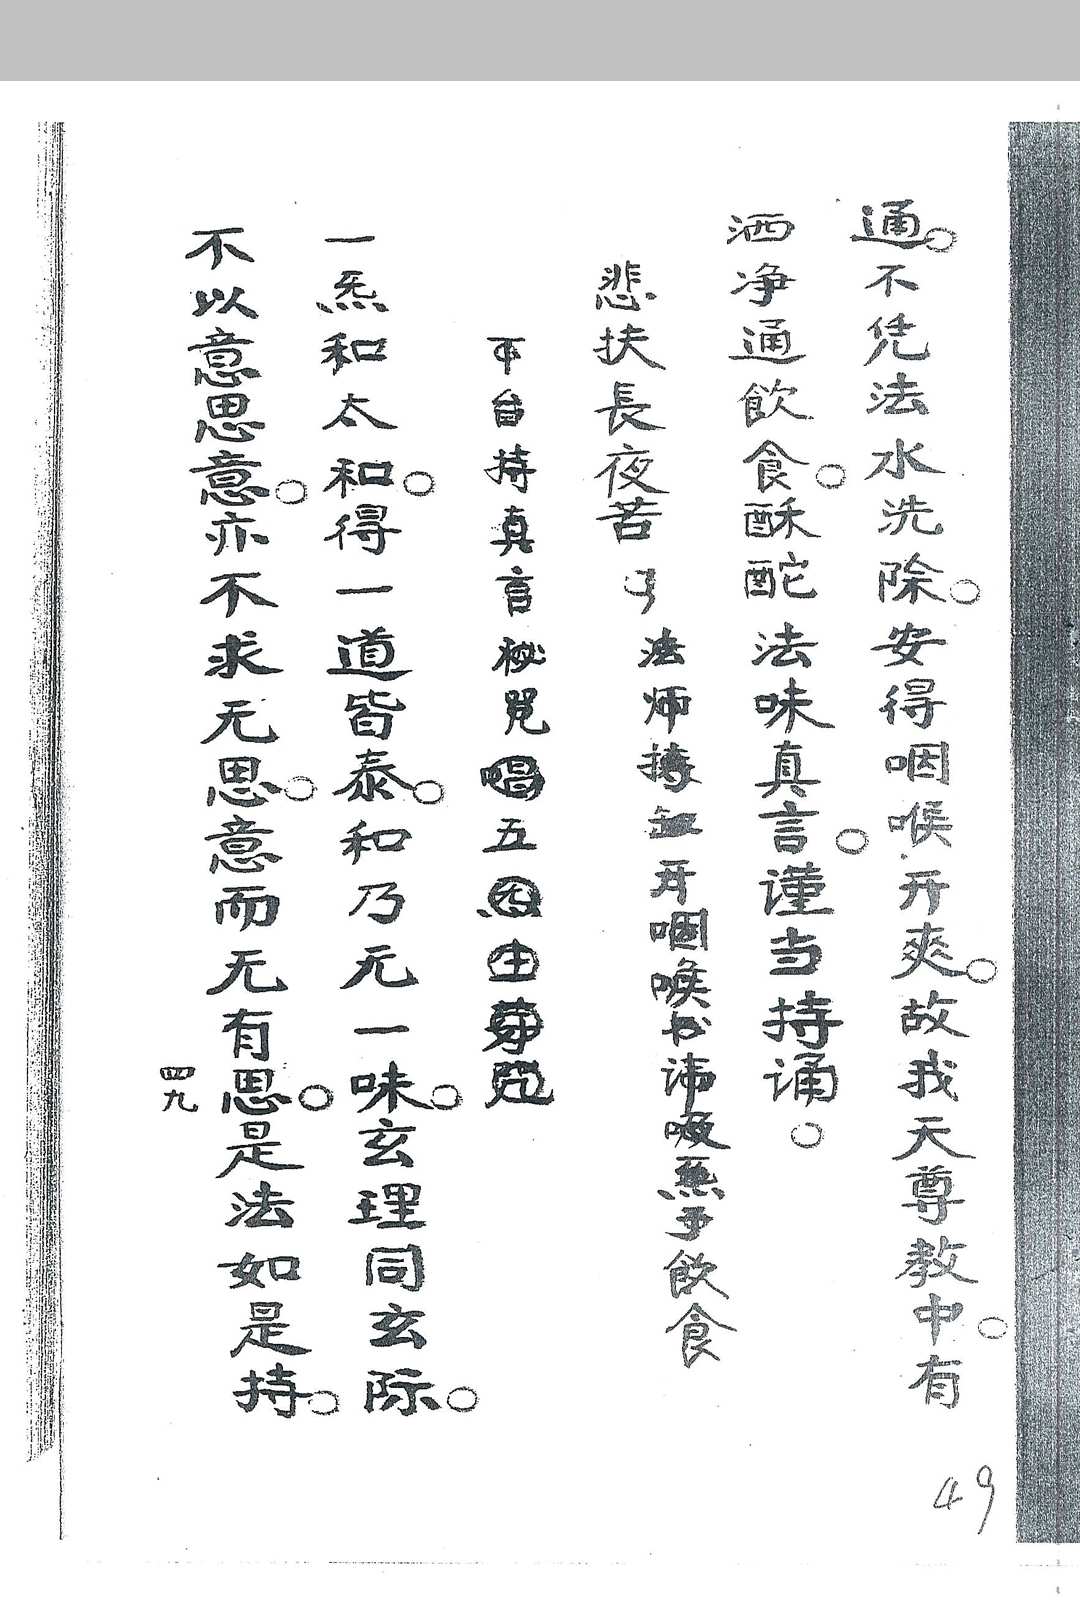 通。不凭法水洗除。安得咽喉开爽。故我天尊教中。有
洒净通飲食。酥酡法味真言。谨当持诵。
悲扶長夜苦 法师持 开咽喉 讳 炁于飲食
下台持真言秘咒唱五 咒
一炁和太和。得一道皆泰。和乃元一味。玄理同玄际。
不以意思意。亦不求无思。意而无有思。是法如是持。
四九
49